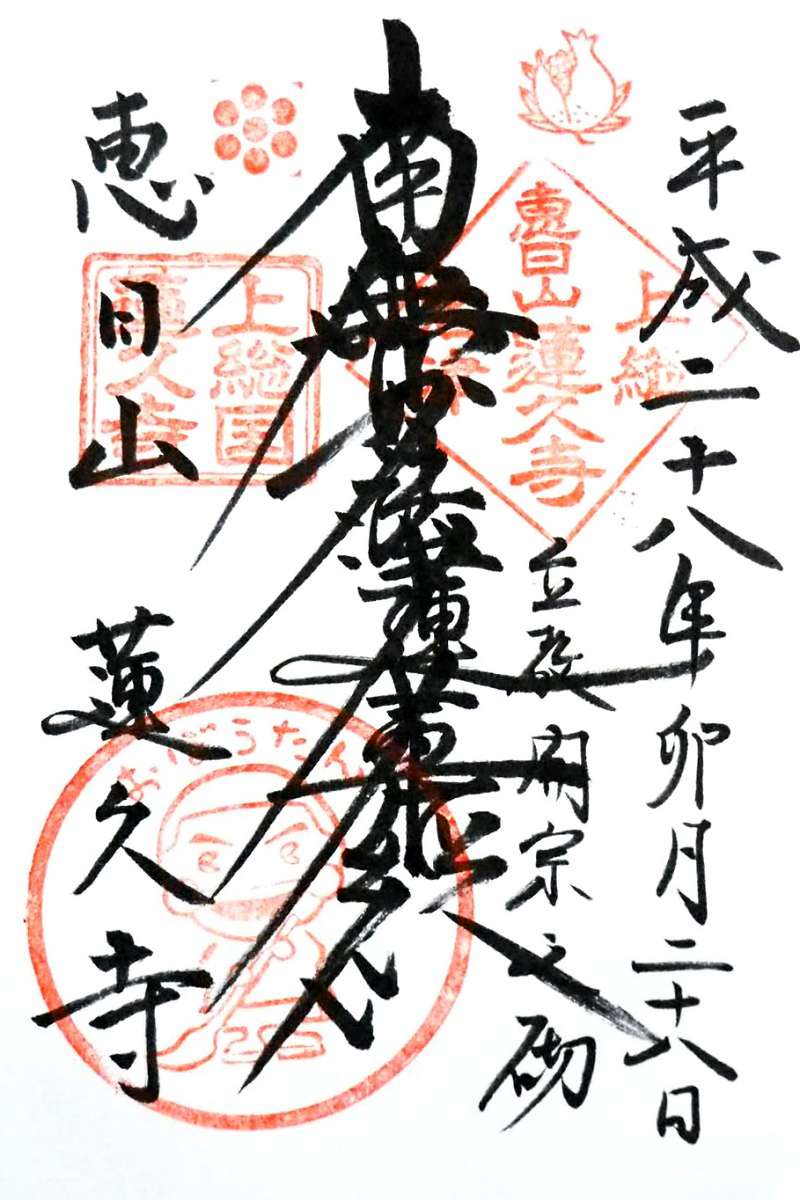 平成二十八年卯月二十八日
立教開宗之砌
南無妙法蓮華経
恵日山 蓮久寺
上総
恵日山蓮久寺
上総国
蓮久寺
おぼうたん